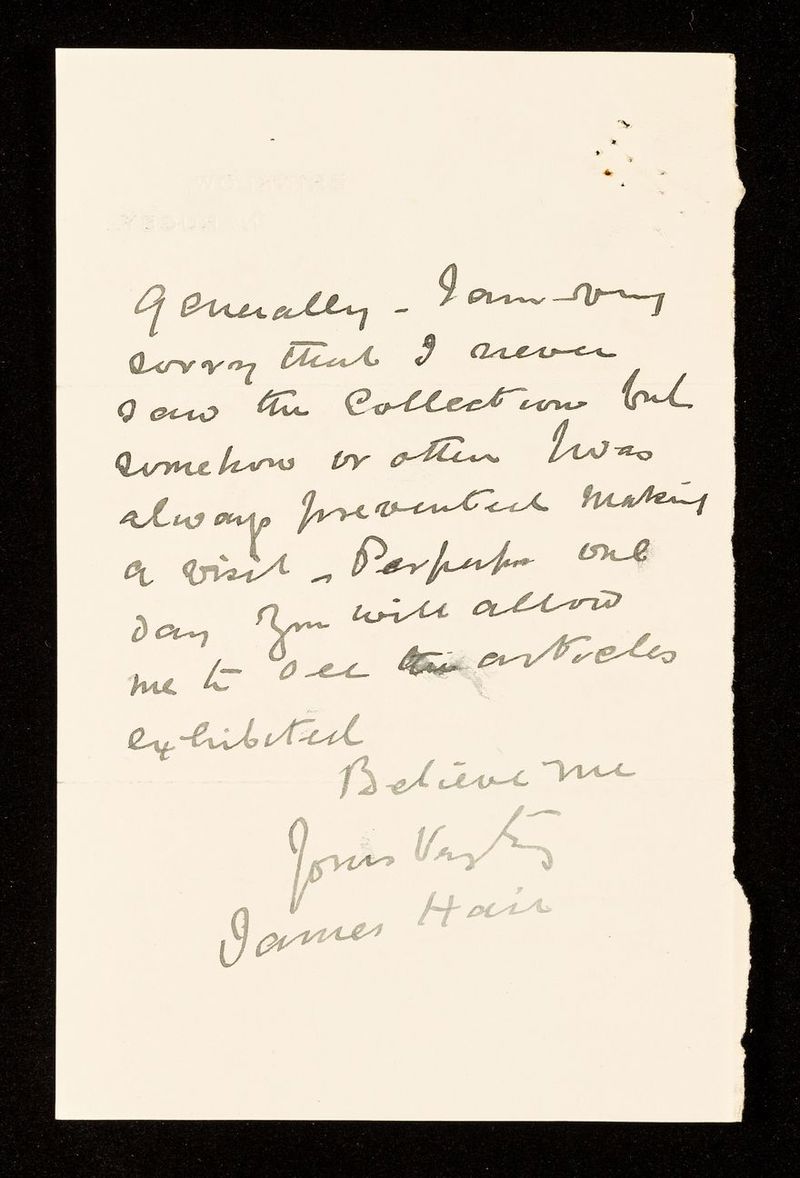 Generally - I am very
sorry that I never
saw the Collection but
somehow or other I was
always prevented making
a visit - Perhaps one
day you will allow
me to see the articles
exhibited
Believe me
Yours Very Truly
James Hair